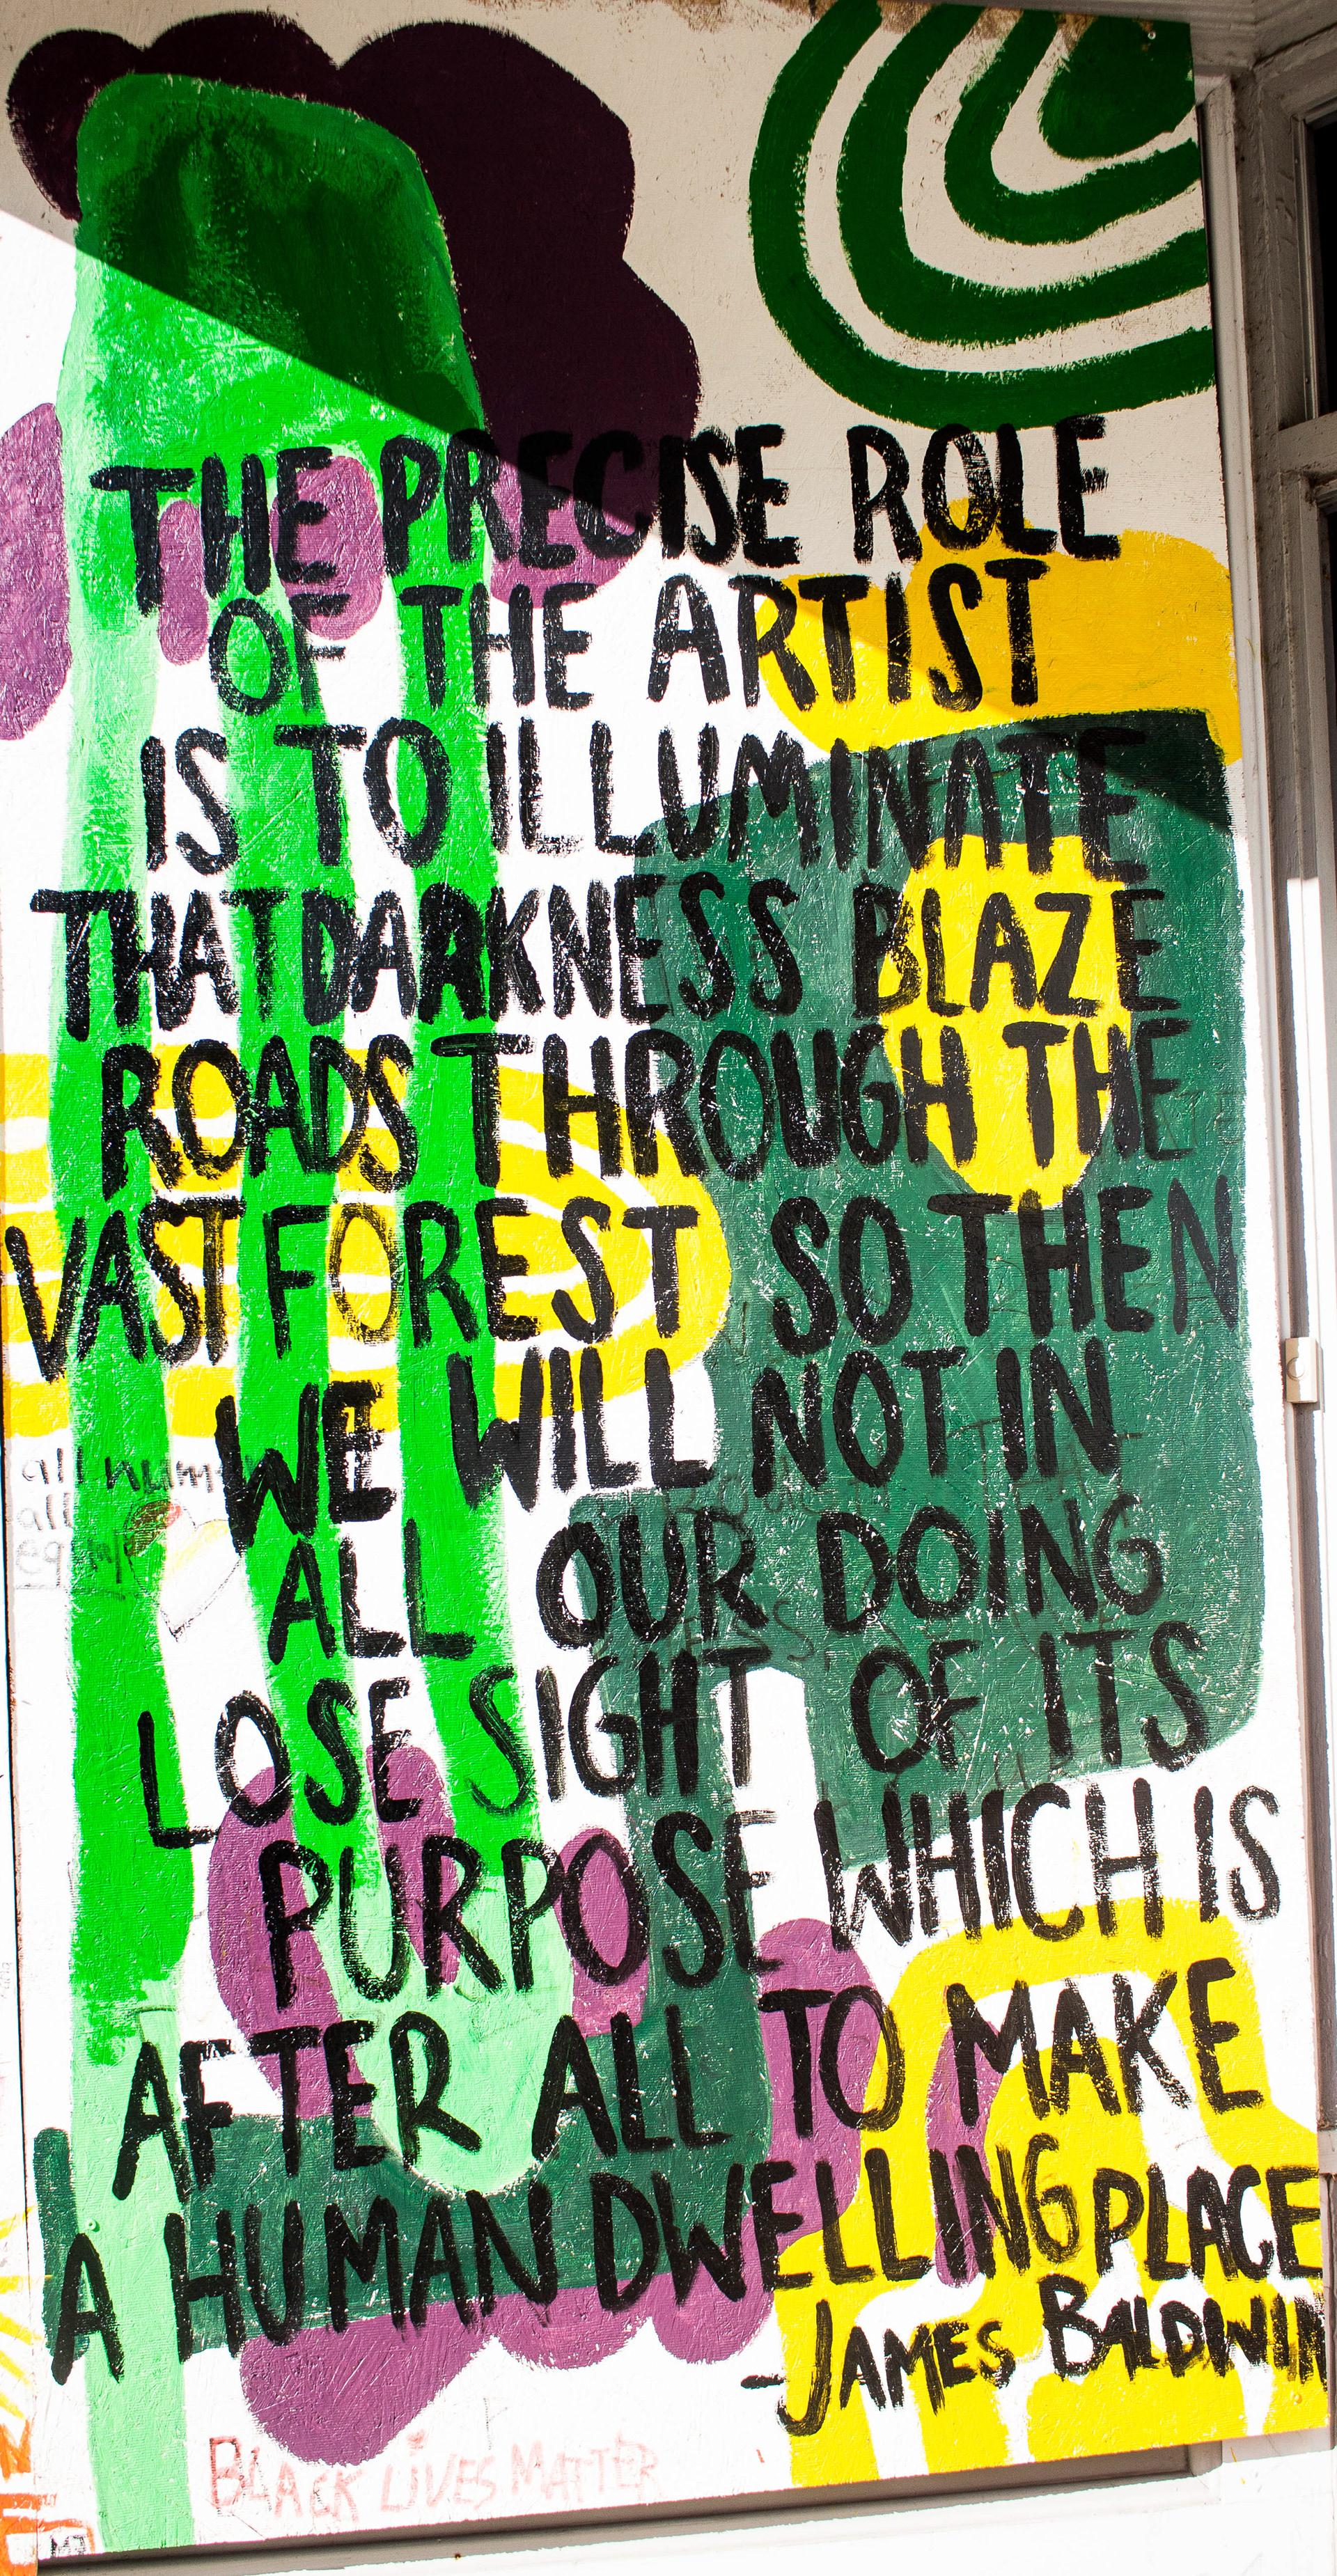 THE PRECISE ROLE
OF THE ARTIST
IS TO ILLUMINATE
THAT DARKNESS BLAZE
ROADS THROUGH THE
VAST FOREST SO THEN
WE WILL NOT IN
all hum
all
ALL OUR DOING
LOSE SIGHT OF ITS
PURPOSE WHICH IS
AFTER ALL TO MAKE
A HUMAN DWELLING PLACE
-JAMES BALDWIN
BLACK LIVES MATTER